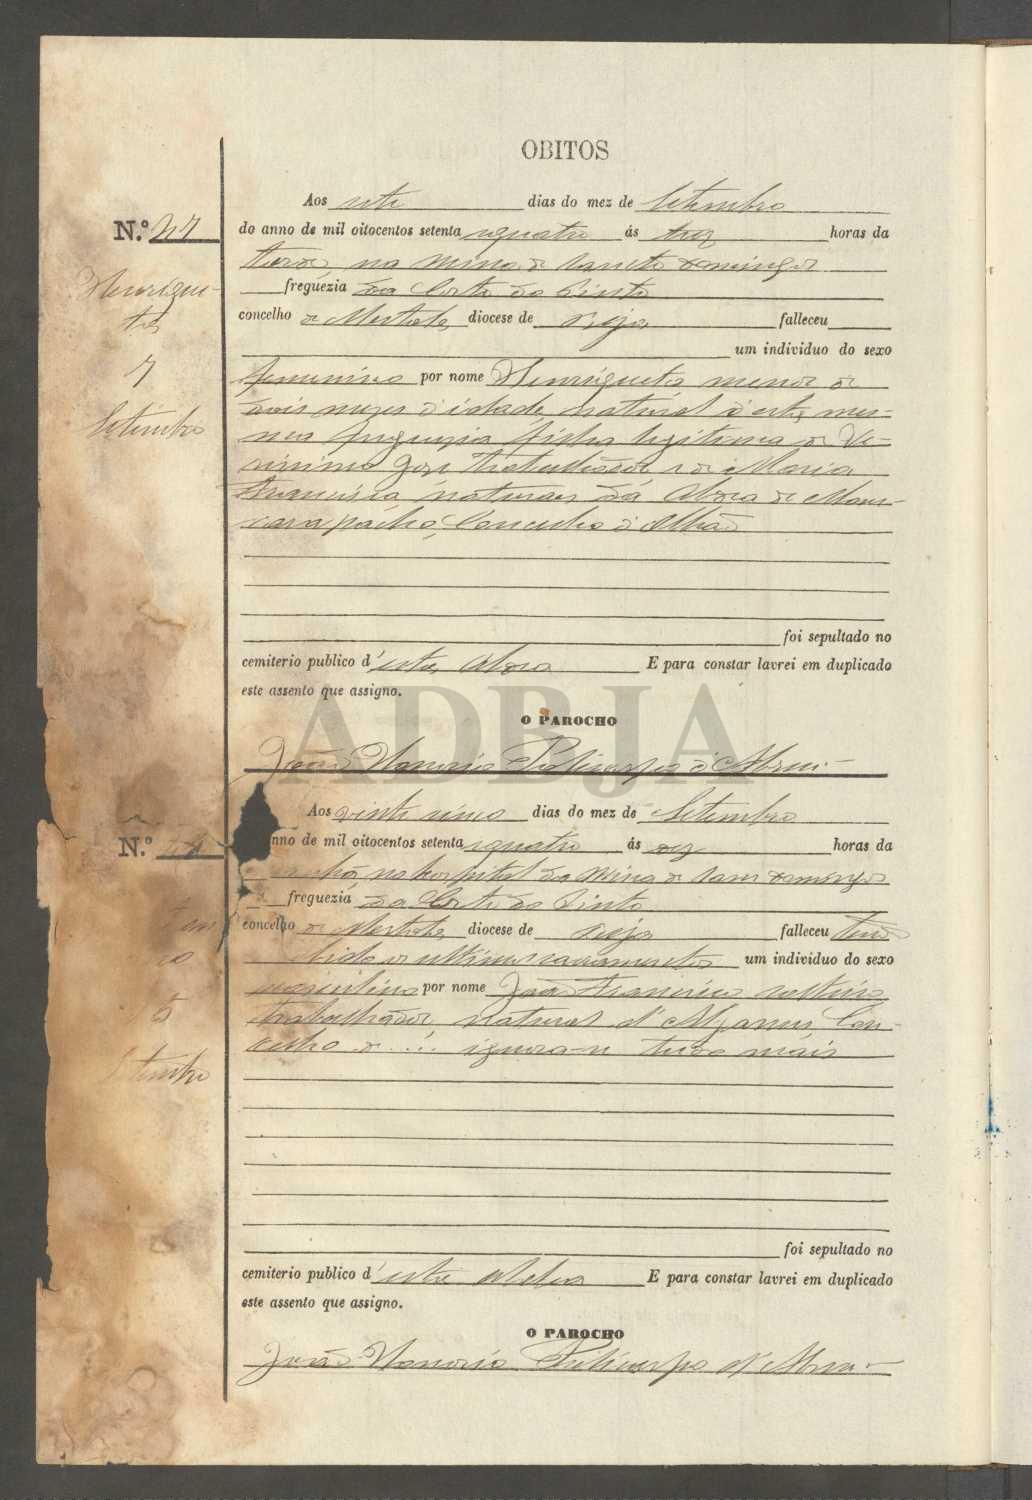 OBITOS
N.º 27
Henrique-
ta
7
Setembro
Aos sete dias do mez de Setembro
do anno de mil oitocentos setenta e quatro ás trez horas da
tarde na Mina de Sancto Domingos
freguezia da Corte do Pinto
concelho de Mertola, diocese de Beja falleceu
um individuo do sexo
femenino por nome Henriqueta menor de
dois mezes d'idade, natural d'esta mes-
ma freguezia filha legitima de Ve-
rissimo José trabalhador e de Maria
Francisca naturaes da Aldea de Mon-
carapacho, Concelho d'Olhão
foi sepultado no
cemiterio publico d'esta Aldea E para constar lavrei em duplicado
este assento que assigno.
O PAROCHO
João Honorio Policarpo d'Abreu
N.º 28
Setembro
Aos vinte cinco dias do mez de Setembro
anno de mil oitocentos setenta e quatro ás dez horas da
manhã no hospital da Mina de Sam Domingos
freguezia da Corte do Pinto
concelho de Mertola, diocese de Beja falleceu tendo
recebido os ultimos sacramentos um individuo do sexo
masculino por nome João Francisco solteiro
trabalhador, natural d' Con-
celho de ... ignora-se tudo mais
foi sepultado no
cemiterio publico d'esta aldea E para constar lavrei em duplicado
este assento que assigno.
O PAROCHO
João Honorio Policarpo d'Abreu
ADBJA